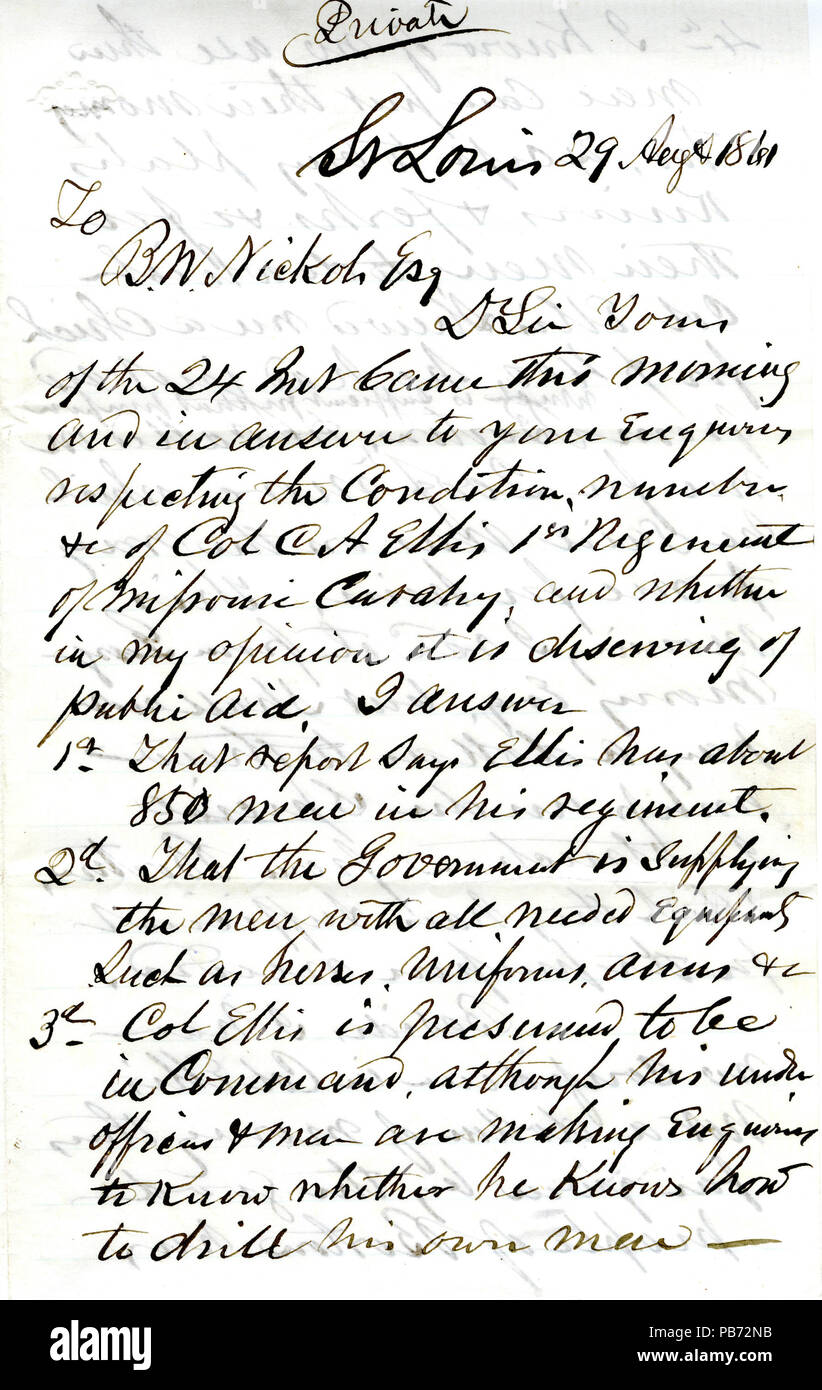 Private
St Louis 29 Augt 1861
To
B.W. Nickols Esq
Dr Sir Yours
of the 24 Inst Came this morning
and in answer to your Enquiries
respecting the Condition, number
&c of Col C A Ellis 1st Regement
of Missouri Cavalry, and whether
in my opinion it is deserving of
public aid. I answer
1st That report says Ellis has about
850 men in his regiment.
2d. That the Government is supplying
the men with all needed Equipments
Such as horses, Uniforms, arms &c
3d Col Ellis is presumed to be
in Command, although his under
officers & men are making Enquiries
to Know whether he Knows how
to drill his own men —
alamy
Image ID: PB72NB
www.alamy.com